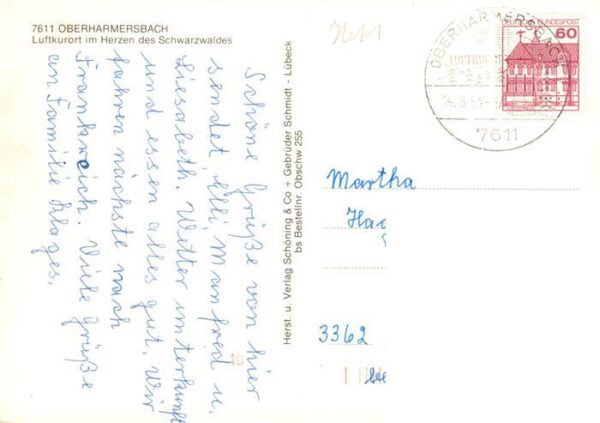 7611 OBERHARMERSBACH
Luftkurort im Herzen des Schwarzwaldes
7611
Schöne Grüße von hier
sendet, Elli, Manfred u.
Liesabeth. Wetter unterkunft
und essen alles gut. Wir
fahren nächste nach
Frankreich. Viele Grüße
an Familie Klages.
Herst. u. Verlag Schöning & Co + Gebrüder Schmidt - Lübeck
bs Bestellnr. Obschw 255
OBERHARMERSBACH
LUFTKURORT
7611
BUNDESPOST
60
Martha
3362
10